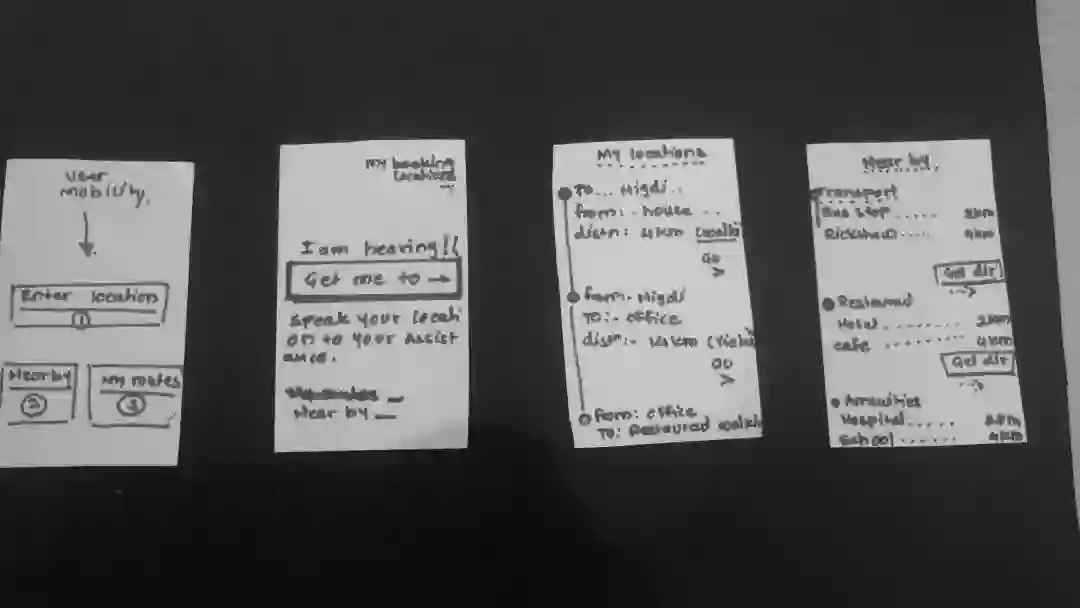 User
mobility.
Enter location
1
Near by
2
My routes
3
My booking
locations
I am hearing!!
Get me to →
Speak your locati
on to your assist
ance.
Near by
My locations
To... Nigdi..
from:- house ..
distn: 4km
go
>
from:- Nigdi
TO:- office
distn:- 14km
go
>
from: office
To: Restaurad
Near by.
Transport
Bus stop ..... 2km
Rickshaw .... 4km
Get dir
Restaurad
Hotel ........ 2km
cafe ........ 4km
Get dir
Amenities
Hospital ......
School ...... 4km